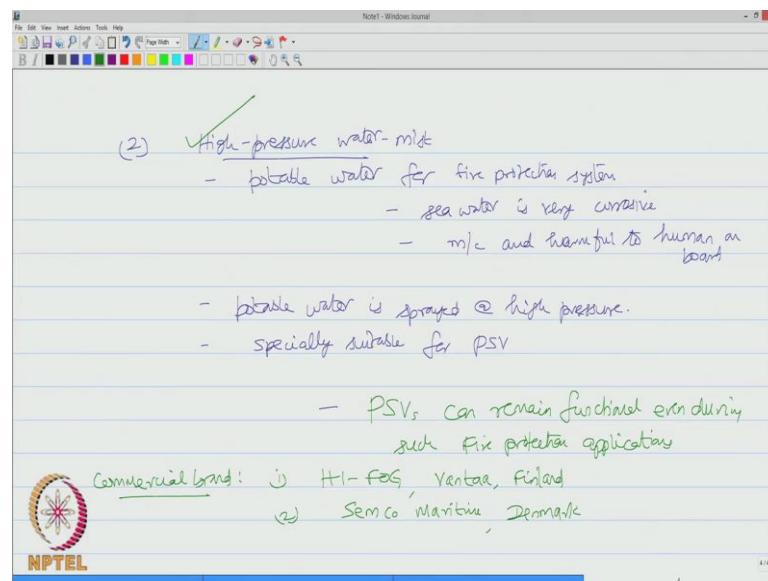 Note1 - Windows Journal
File Edit View Insert Actions Tools Help
Page Width
B I
(2) High-pressure water-mist
- potable water for fire protection system
- sea water is very corrosive
- m/c and harmful to human on
board
- potable water is sprayed @ high pressure.
- specially suitable for PSV
- PSVs can remain functional even during
such fire protection applications
Commercial brand: 1) HI-FOG, Vantaa, Finland
(2) Semco Maritime, Denmark
NPTEL
4/4